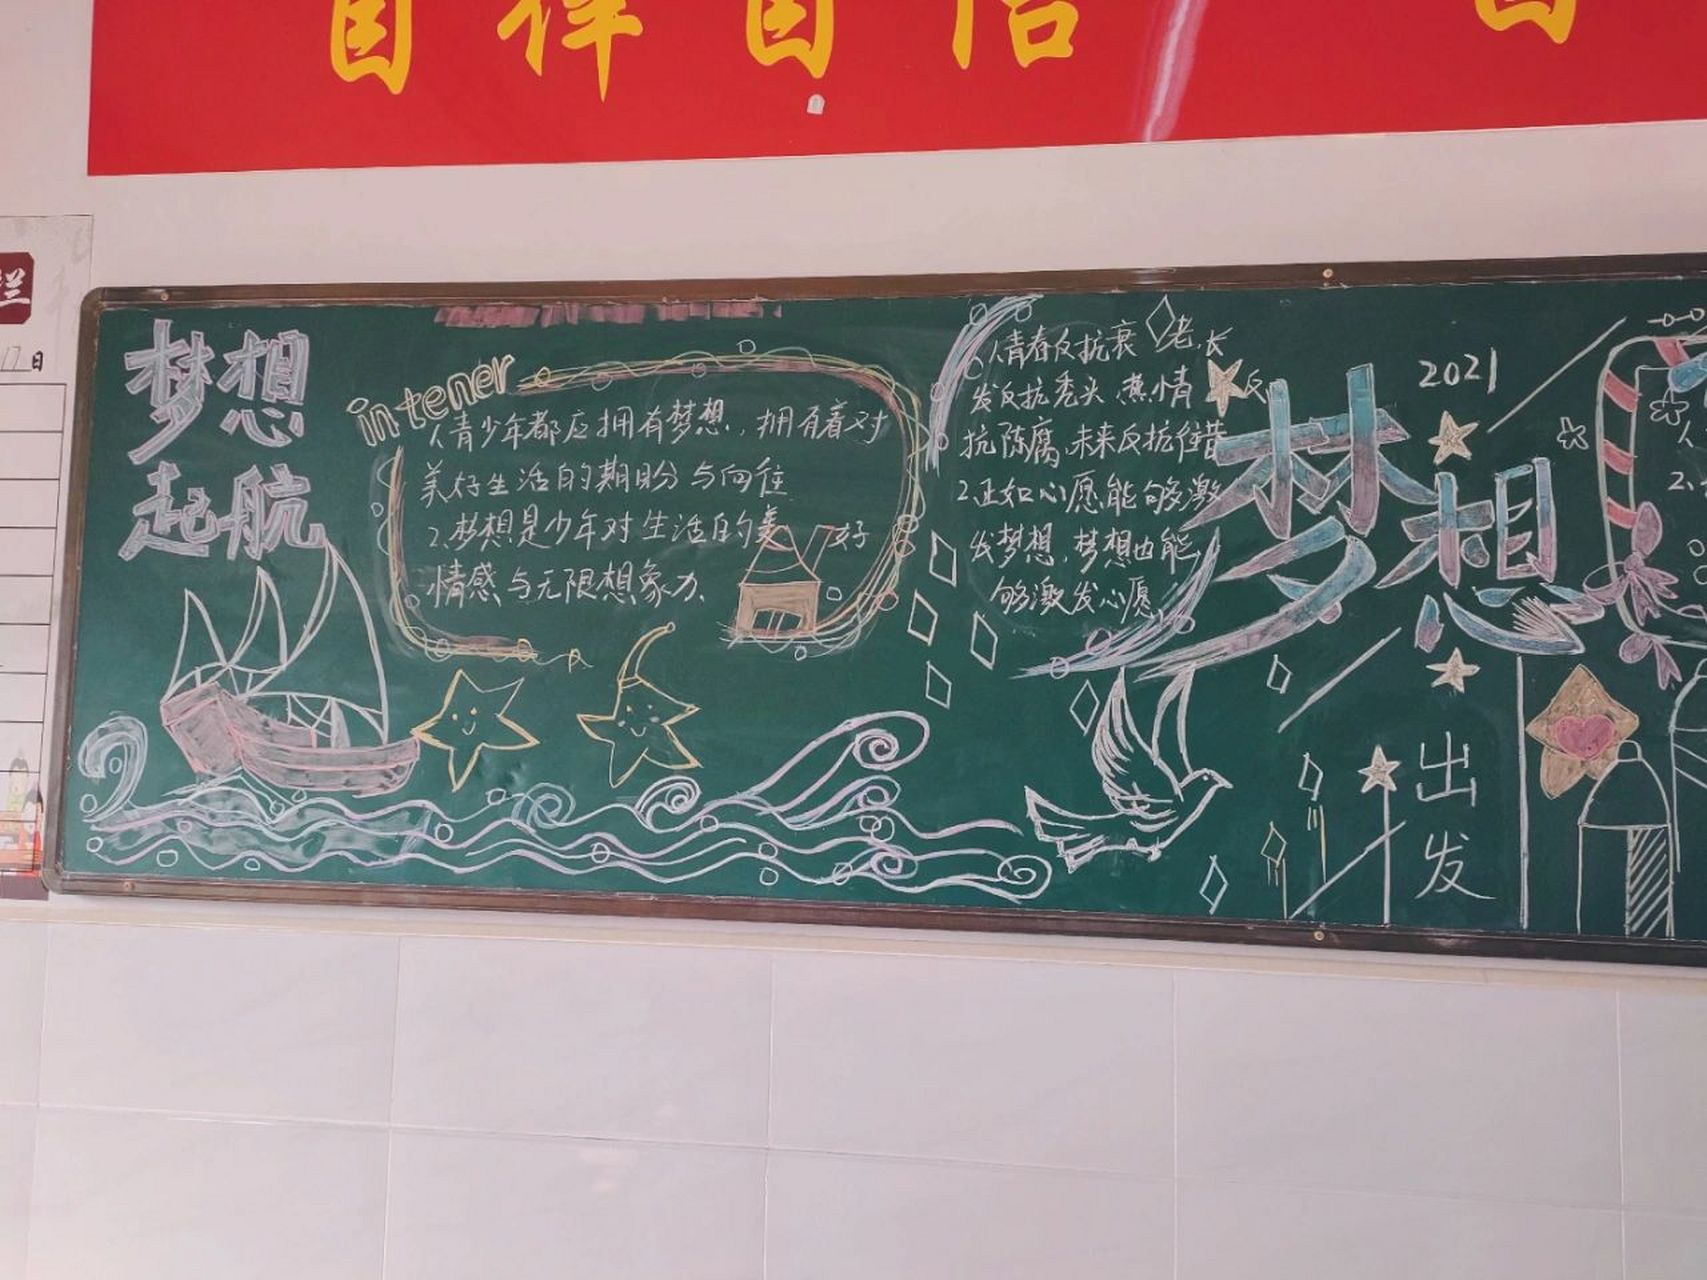 自律自信 自
栏
17日
梦想
起航
intener
1、青少年都应拥有梦想，拥有着对
美好生活的期盼与向往
2、梦想是少年对生活的美好
情感与无限想象力、
1、青春反抗衰老、长
发反抗秃头、热情反
抗陈腐、未来反抗往昔
2、正如心愿能够激
发梦想，梦想也能
够激发心愿
2021
梦想
出
发
1、
2、